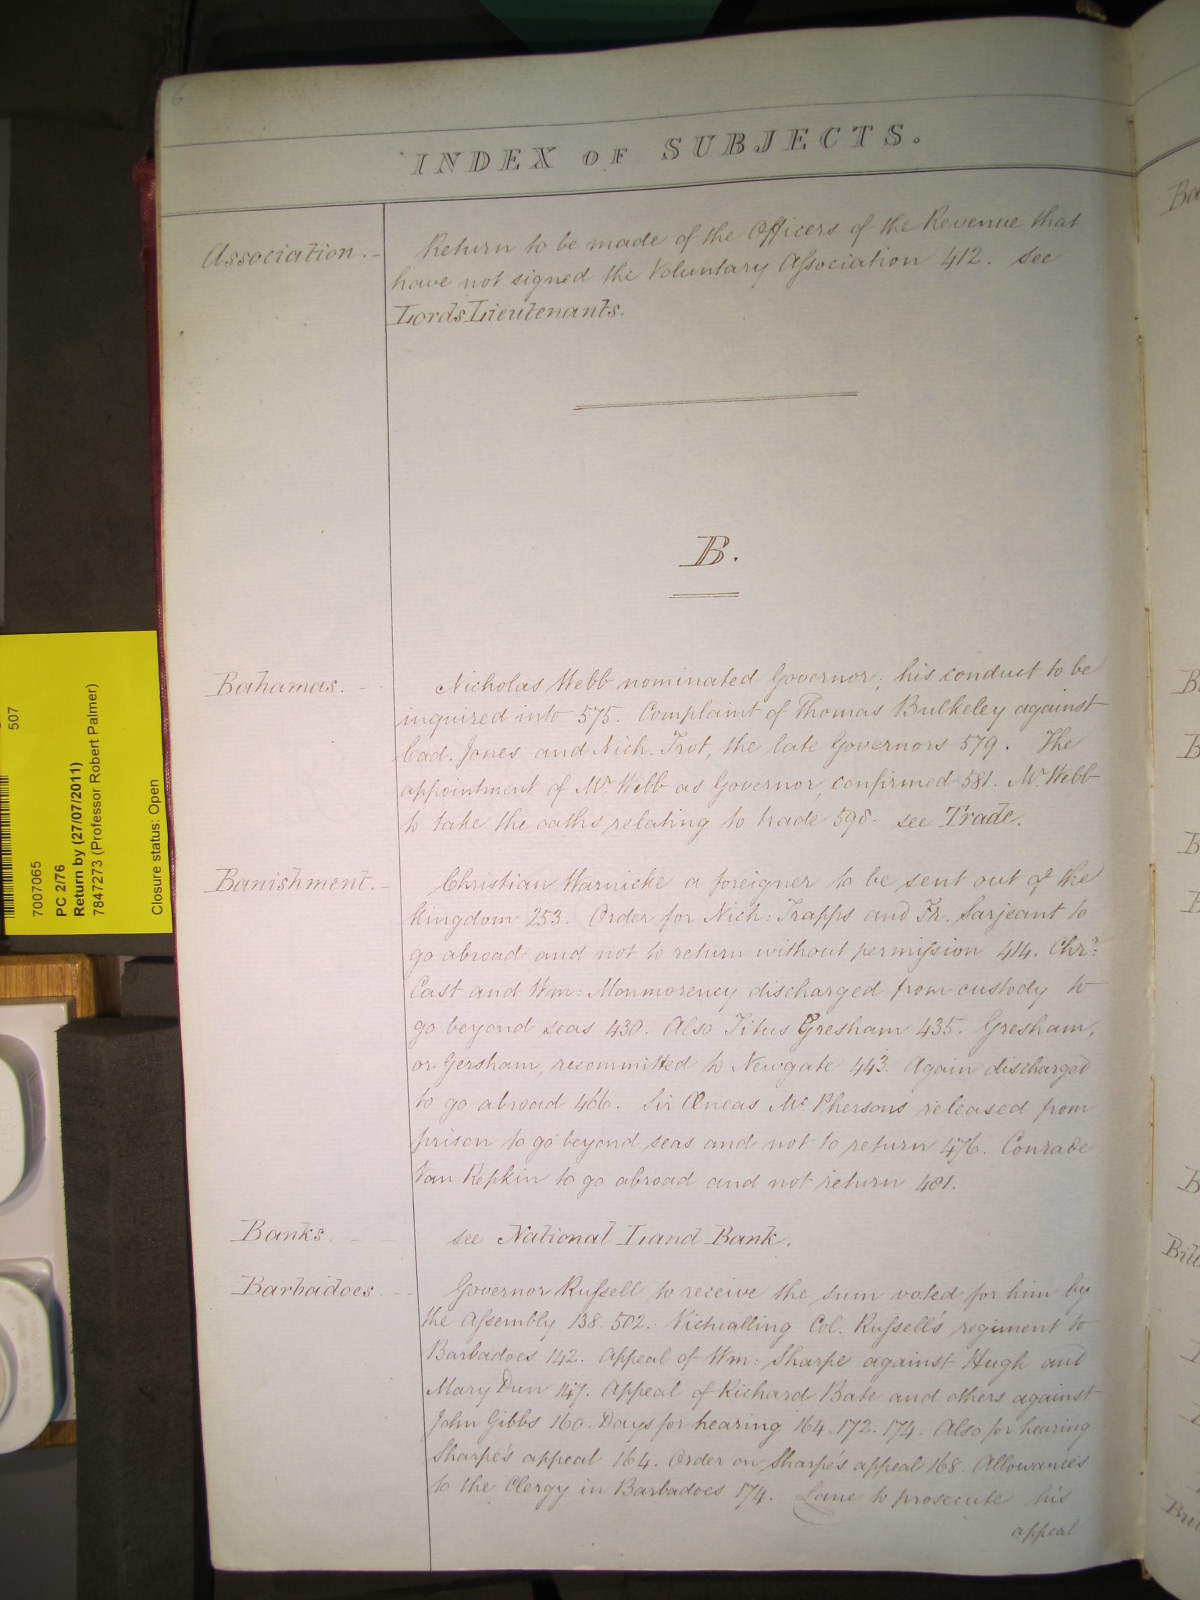 6
INDEX OF SUBJECTS.
Association. - Return to be made of the Officers of the Revenue that
have not signed the Voluntary Association 412. See
Lords Lieutenants.
B.
Bahamas. - - Nicholas Webb nominated Governor; his conduct to be
inquired into 575. Complaint of Thomas Bulkeley against
Cad. Jones and Nich. Trot, the late Governors 579. The
appointment of Mr. Webb as Governor, confirmed 581. Mr. Webb
to take the oaths relating to trade 598. see Trade.
Banishment. - Christian Warnicke a foreigner to be sent out of the
Kingdom 253. Order for Nich: Trapps and Fr. Sarjeant to
go abroad and not to return without permission 414. Chrr:
Cast and Wm: Monmorency discharged from custody to
go beyond seas 430. Also Titus Gresham 435. Gresham,
or Gersham, recommitted to Newgate 443. Again discharged
to go abroad 466. Sir Æneas Mc Phersons released from
prison to go beyond seas and not to return 476. Conrade
Van Repkin to go abroad and not return 481.
Banks. - - see National Land Bank.
Barbadoes. - - Governor Russell to receive the sum voted for him by
the Assembly 138. 502. Victualling Col. Russell's regiment to
Barbadoes 142. Appeal of Wm: Sharpe against Hugh and
Mary Dun 147. Appeal of Richard Bate and others against
John Gibbs 160. Days for hearing 164. 172. 174. Also for hearing
Sharpe's appeal 164. Order on Sharpe's appeal 168. Allowances
to the Clergy in Barbadoes 174. Lane to prosecute his
appeal
507
7007065
PC 2/76
Return by (27/07/2011)
7847273 (Professor Robert Palmer)
Closure status: Open